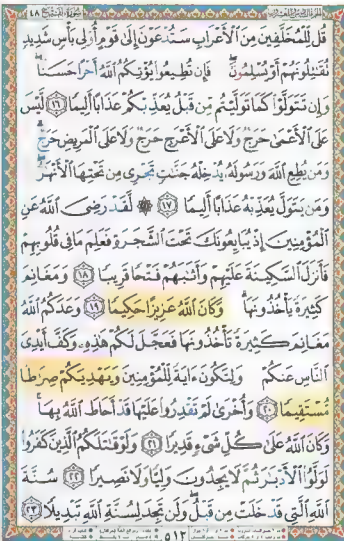 ٤٨
قُل لِّلْمُخَلَّفِينَ مِنَ ٱلْأَعْرَابِ سَتُدْعَوْنَ إِلَىٰ قَوْمٍ أُو۟لِى بَأْسٍ شَدِيدٍ
تُقَٰتِلُونَهُمْ أَوْ يُسْلِمُونَ ۖ فَإِن تُطِيعُوا۟ يُؤْتِكُمُ ٱللَّهُ أَجْرًا حَسَنًا ۖ
وَإِن تَتَوَلَّوْا۟ كَمَا تَوَلَّيْتُم مِّن قَبْلُ يُعَذِّبْكُمْ عَذَابًا أَلِيمًا ﴿١٦﴾ لَّيْسَ
عَلَى ٱلْأَعْمَىٰ حَرَجٌ وَلَا عَلَى ٱلْأَعْرَجِ حَرَجٌ وَلَا عَلَى ٱلْمَرِيضِ حَرَجٌ ۗ
وَمَن يُطِعِ ٱللَّهَ وَرَسُولَهُۥ يُدْخِلْهُ جَنَّٰتٍ تَجْرِى مِن تَحْتِهَا ٱلْأَنْهَٰرُ ۖ
وَمَن يَتَوَلَّ يُعَذِّبْهُ عَذَابًا أَلِيمًا ﴿١٧﴾ ۞ لَّقَدْ رَضِىَ ٱللَّهُ عَنِ
ٱلْمُؤْمِنِينَ إِذْ يُبَايِعُونَكَ تَحْتَ ٱلشَّجَرَةِ فَعَلِمَ مَا فِى قُلُوبِهِمْ
فَأَنزَلَ ٱلسَّكِينَةَ عَلَيْهِمْ وَأَثَٰبَهُمْ فَتْحًا قَرِيبًا ﴿١٨﴾ وَمَغَانِمَ
كَثِيرَةً يَأْخُذُونَهَا ۗ وَكَانَ ٱللَّهُ عَزِيزًا حَكِيمًا ﴿١٩﴾ وَعَدَكُمُ ٱللَّهُ
مَغَانِمَ كَثِيرَةً تَأْخُذُونَهَا فَعَجَّلَ لَكُمْ هَٰذِهِۦ وَكَفَّ أَيْدِىَ
ٱلنَّاسِ عَنكُمْ وَلِتَكُونَ ءَايَةً لِّلْمُؤْمِنِينَ وَيَهْدِيَكُمْ صِرَٰطًا
مُّسْتَقِيمًا ﴿٢٠﴾ وَأُخْرَىٰ لَمْ تَقْدِرُوا۟ عَلَيْهَا قَدْ أَحَاطَ ٱللَّهُ بِهَا ۚ
وَكَانَ ٱللَّهُ عَلَىٰ كُلِّ شَىْءٍ قَدِيرًا ﴿٢١﴾ وَلَوْ قَٰتَلَكُمُ ٱلَّذِينَ كَفَرُوا۟
لَوَلَّوُا۟ ٱلْأَدْبَٰرَ ثُمَّ لَا يَجِدُونَ وَلِيًّا وَلَا نَصِيرًا ﴿٢٢﴾ سُنَّةَ
ٱللَّهِ ٱلَّتِى قَدْ خَلَتْ مِن قَبْلُ ۖ وَلَن تَجِدَ لِسُنَّةِ ٱللَّهِ تَبْدِيلًا ﴿٢٣﴾
٥١٣